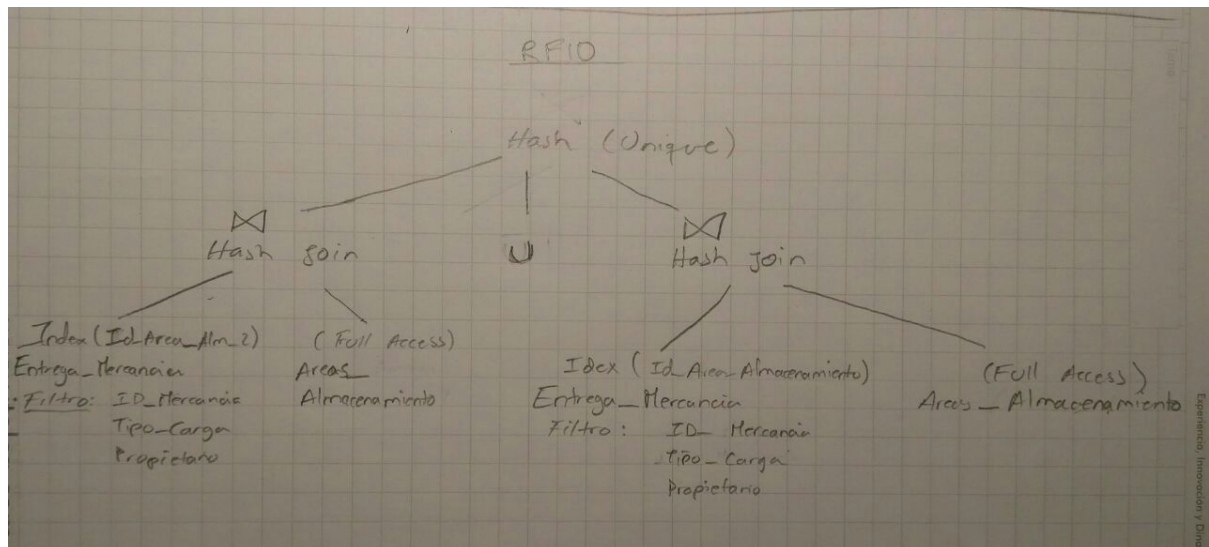 RFIO
Hash (Unique)
⋈
Hash Join
U
⋈
Hash Join
Index (Id_Area_Alm_2)
Entrega_Mercancia
: Filtro: ID_Mercancia
Tipo_Carga
Propietario
(Full Access)
Areas_
Almacenamiento
Idex (Id_Area_Almacenamiento)
Entrega_Mercancia
Filtro: ID_Mercancia
Tipo_Carga
Propietario
(Full Access)
Areas_Almacenamiento
Tema
Experiencia, Innovación y Dina